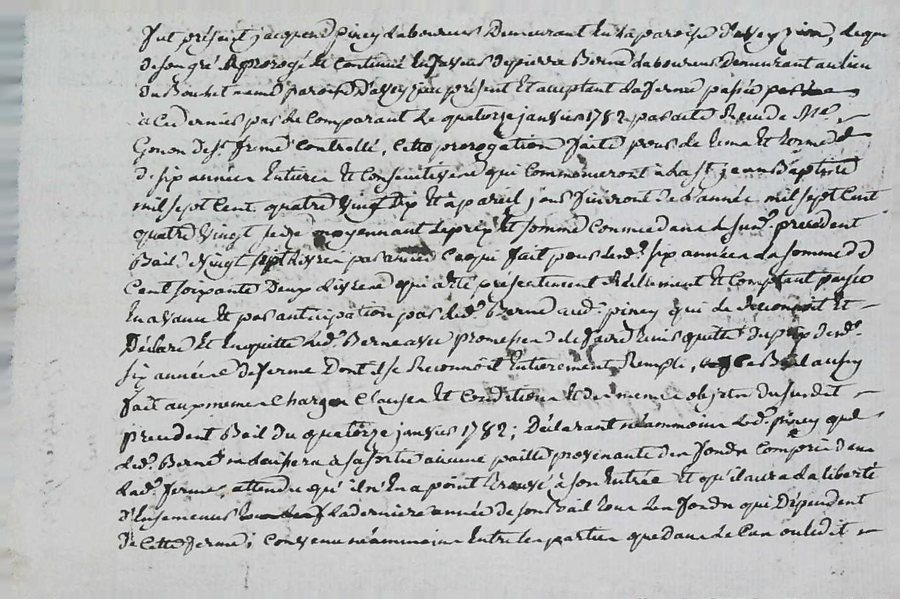 fut présent jacques piney laboureur demeurant en la paroisse d'aveyzieu, lequel
de son gré a prorogé et continué en faveur de pierre Berne laboureur demeurant au lieu
du Bouchet meme paroisse d'aveyzieu présent et acceptant la ferme passée
a ce dernier par le comparant le quatorze janvier 1782 par acte Reçu de Me
Gonon de St ferme controllé, cette prorogation faitte pour le tems et terme de
de six années Entieres et consecutives qui commenceront à la st jean Baptiste
mil sept Cent quatre vingt Dix et à pareil jour finiront de l'année mil sept Cent
quatre vingt seize moyennant le prix et somme comme dans le susd. precedent
Bail de vingt sept livres par année ce qui fait pour lesd. six années la somme de
Cent soixante Deux livres qui a été presentement réellement et comptant payée
En avance et par anticipation par led. Berne aud. piney qui le reconnoit et
Déclare et En quitte led. Berne avec promesse de le faire tenir quitte du prix desd.
six années de ferme dont il se Reconnoit Entierement Rempli, ce Bail aussy
fait aux memes charges clauses et conditions et des memes objets du susdit
precedent Bail du quatorze janvier 1782; Déclarant néammoins led. piney que
led. Berne ne laissera à sa sortie aucune paille provenante des fonds compris dans
lad. ferme attendu qu'il n'En a point trouvé à son Entrée et qu'il aura la liberté
d'Ensemencer la derniere année de son bail tous les fonds qui Dépendent
de cette ferme; convenu néammoins Entre les parties que dans le cas ou ledit